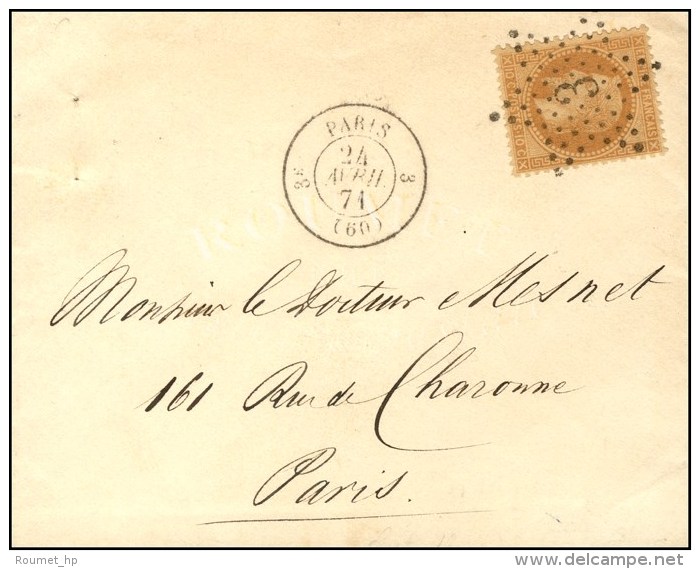 EMPIRE FRANCAIS
3
PARIS
3E 3
24
AVRIL
71
(60)
Monsieur le Docteur Mesnet
161 Rue de Charonne
Paris.
Roumet_hp
delcampe.net